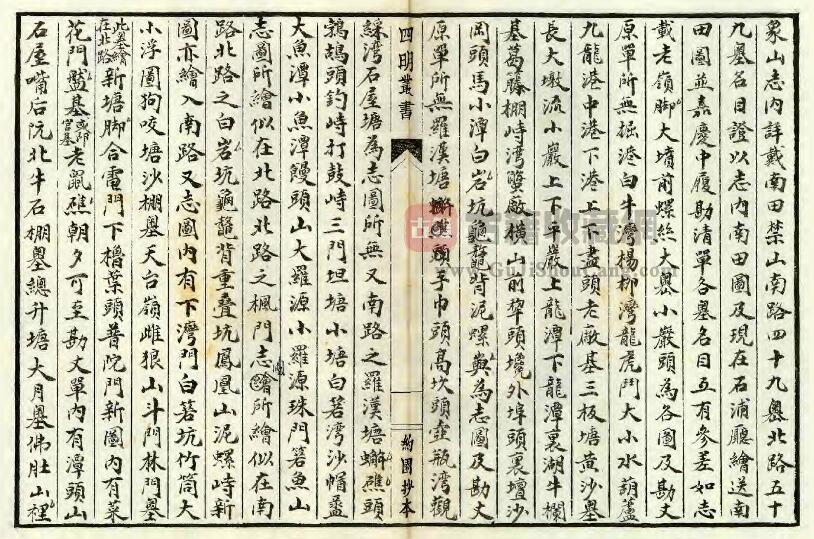 象山志內詳載南田禁山南路四十九嶴北路五十
九嶴名目證以志內南田圖及現在石浦廳繪送南
田圖並嘉慶中履勘清單各嶴名目互有參差如志
載老嶺脚大墳前螺絲大嶴小嚴頭為各圖及勘丈
原單所無掘港白牛灣楊柳灣龍虎門大小水葫蘆
九龍港中港下港上下盡頭老厰基三板塘黃沙嶴
長大墩流小巖上下平巖上龍潭下龍潭裏湖牛欄
基葛藤棚峙灣蟹厰橫山前犂頭境外埠頭裏壇沙
岡頭馬小潭白岩坑龜鼈背泥螺嶴為志圖及勘丈
原單所無羅漢塘蠏礁頭手巾頭高坎頭壺瓶灣觀
四明叢書
約園抄本
綵灣石屋塘為志圖所無又南路之羅漢塘蠏礁頭
鵓鴣頭釣峙打鼓峙三門坦塘小塘白茖灣沙帽盔
大魚潭小魚潭饅頭山大羅源小羅源珠門茖魚山
志圖所繪似在北路北路之楓門志圖所繪似在南
路北路之白岩坑龜鼈背重叠坑鳳凰山泥螺峙新
圖亦繪入南路又志圖內有下灣門白茖坑竹筒大
小浮圖狗咬塘沙棚嶴天台嶺雌狼山斗門林門嶴
此嶴繪在北路新塘脚合雷門下櫓葉頭普陀門新圖內有菜
花門藍基或即官基老鼠礁朝夕可至勘丈單內有潭頭山
石屋嘴后阮北牛石棚嶴總升塘大月嶴佛肚山裡
古籍收藏網
www.GuJiShouCang.com